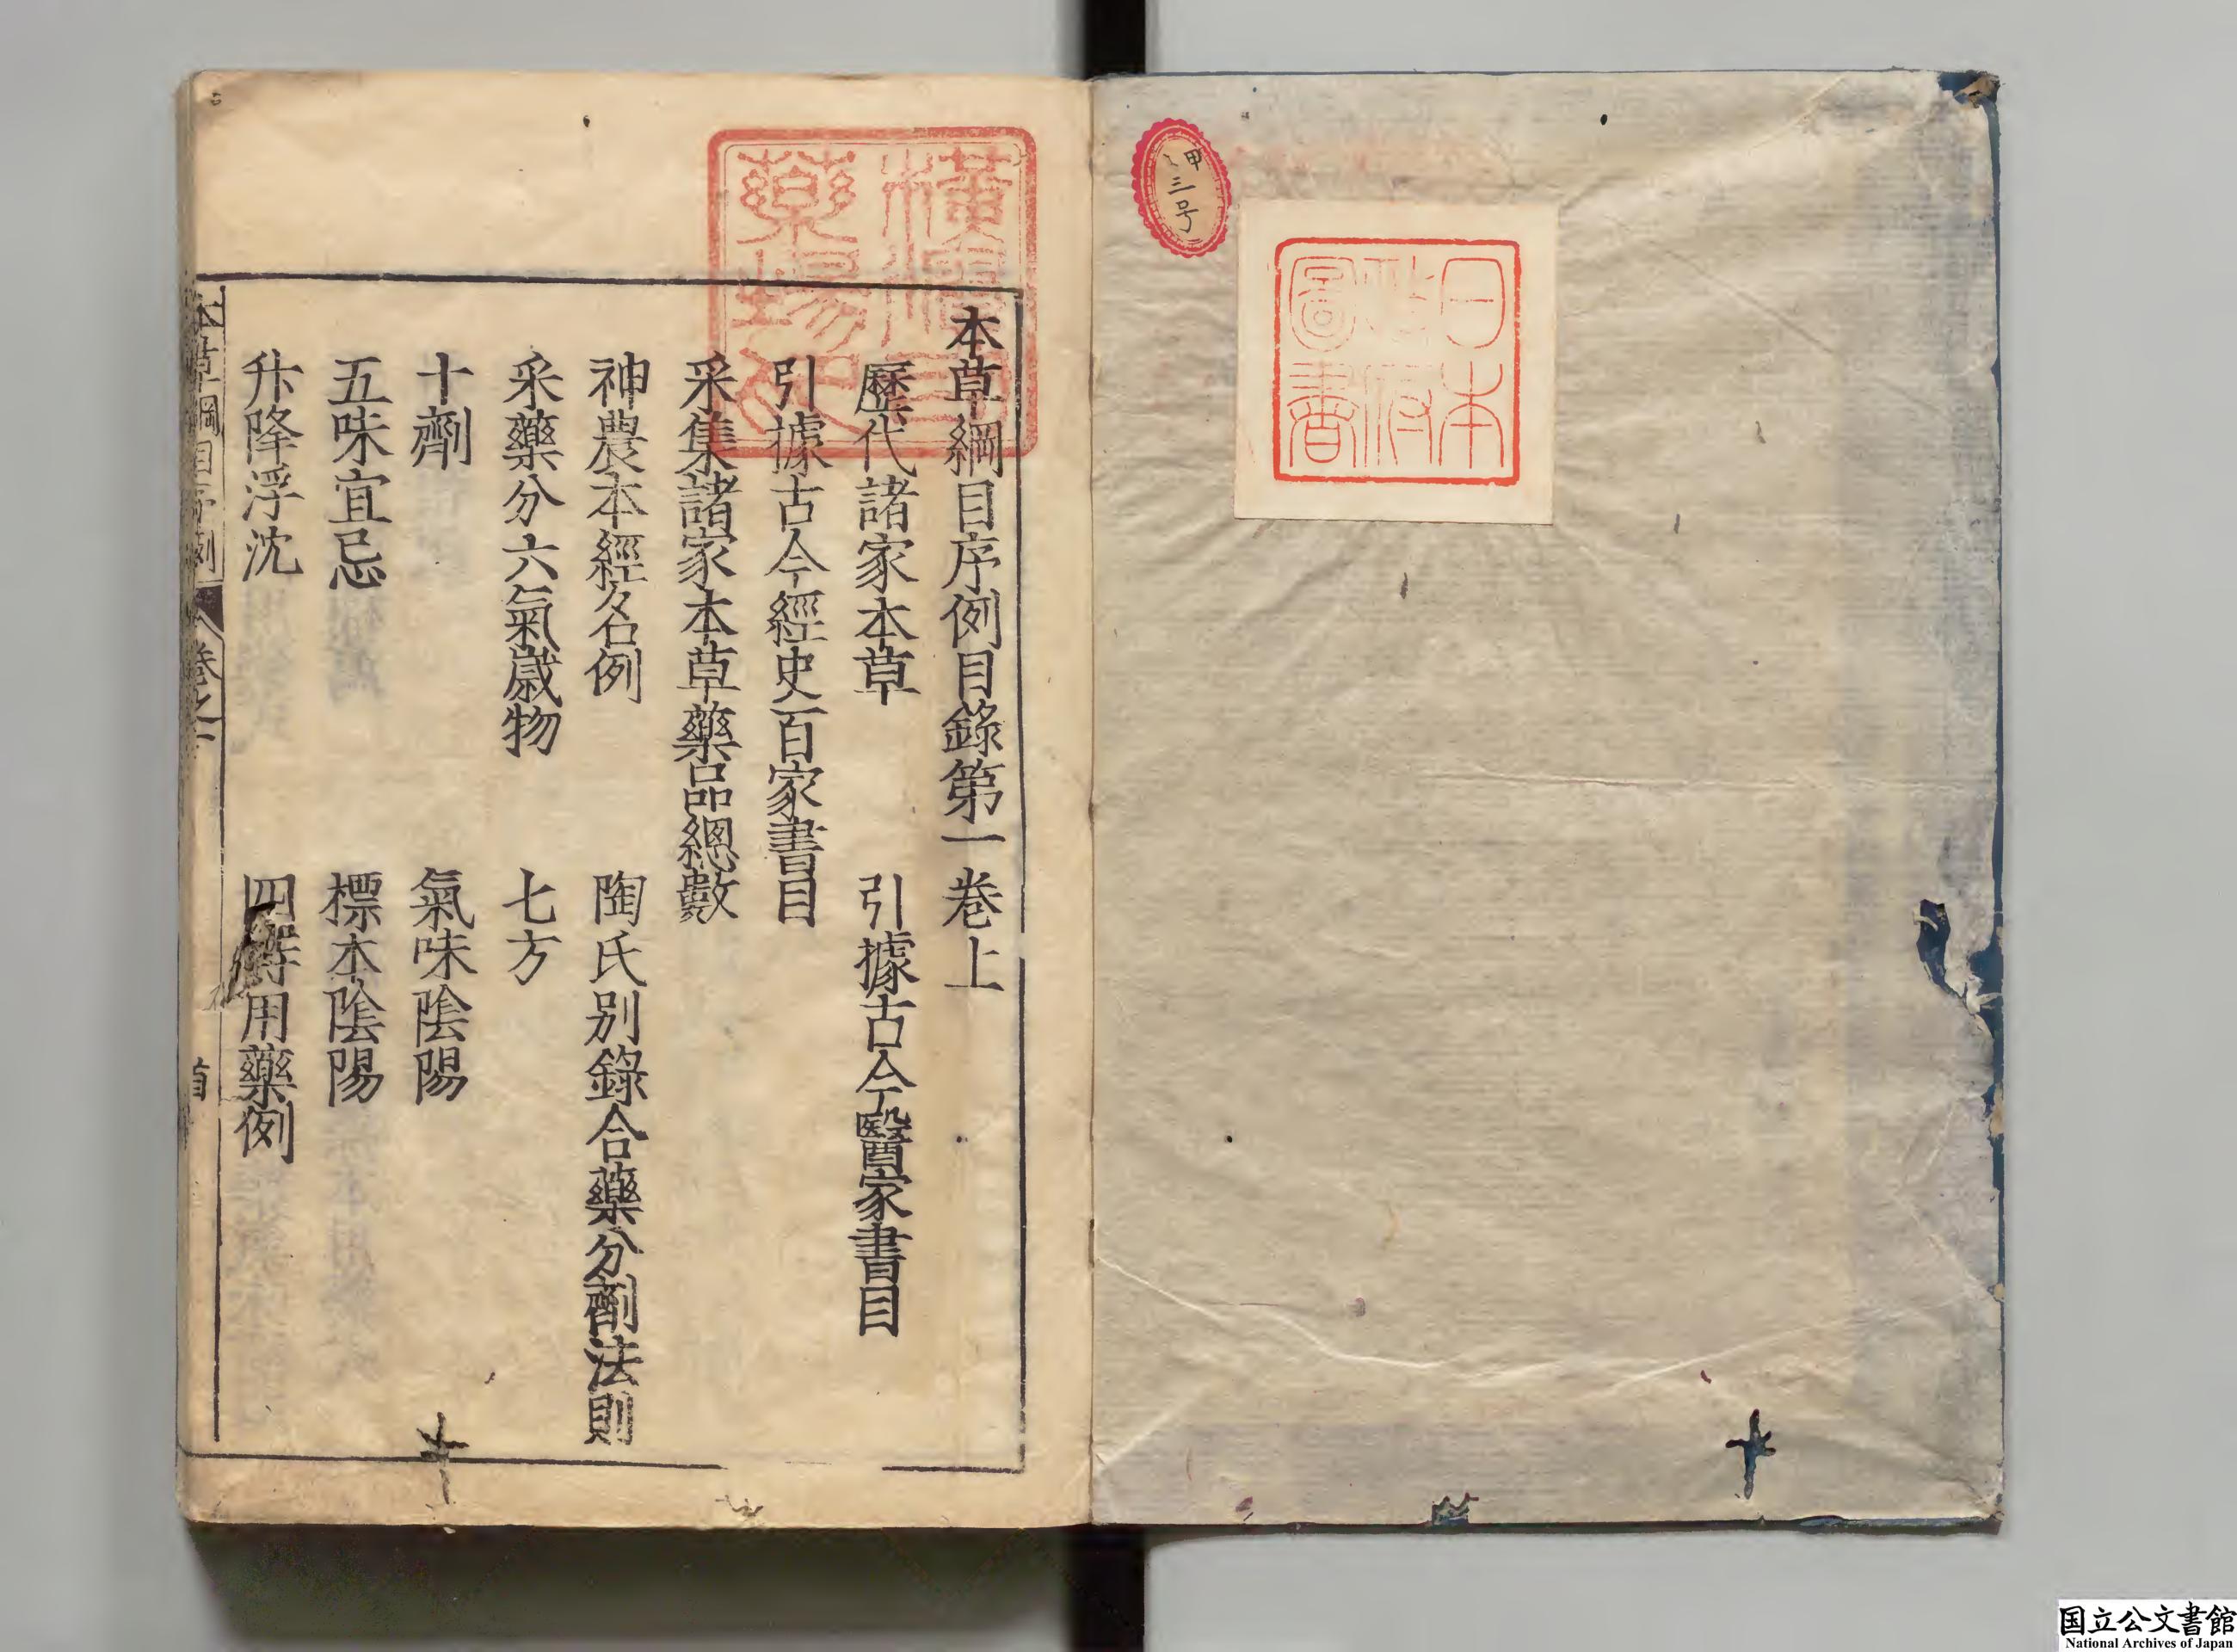 甲
三号
日本
政府
圖書
本草綱目序例目錄第一卷上
歷代諸家本草 引據古今醫家書目
引據古今經史百家書目
采集諸家本草藥品總數
神農本經名例 陶氏別錄合藥分劑法則
采藥分六氣歲物 七方
十劑 氣味陰陽
五味宜忌 標本陰陽
升降浮沈 四時用藥例
本草綱目序例 卷之一
首
国立公文書館
National Archives of Japan